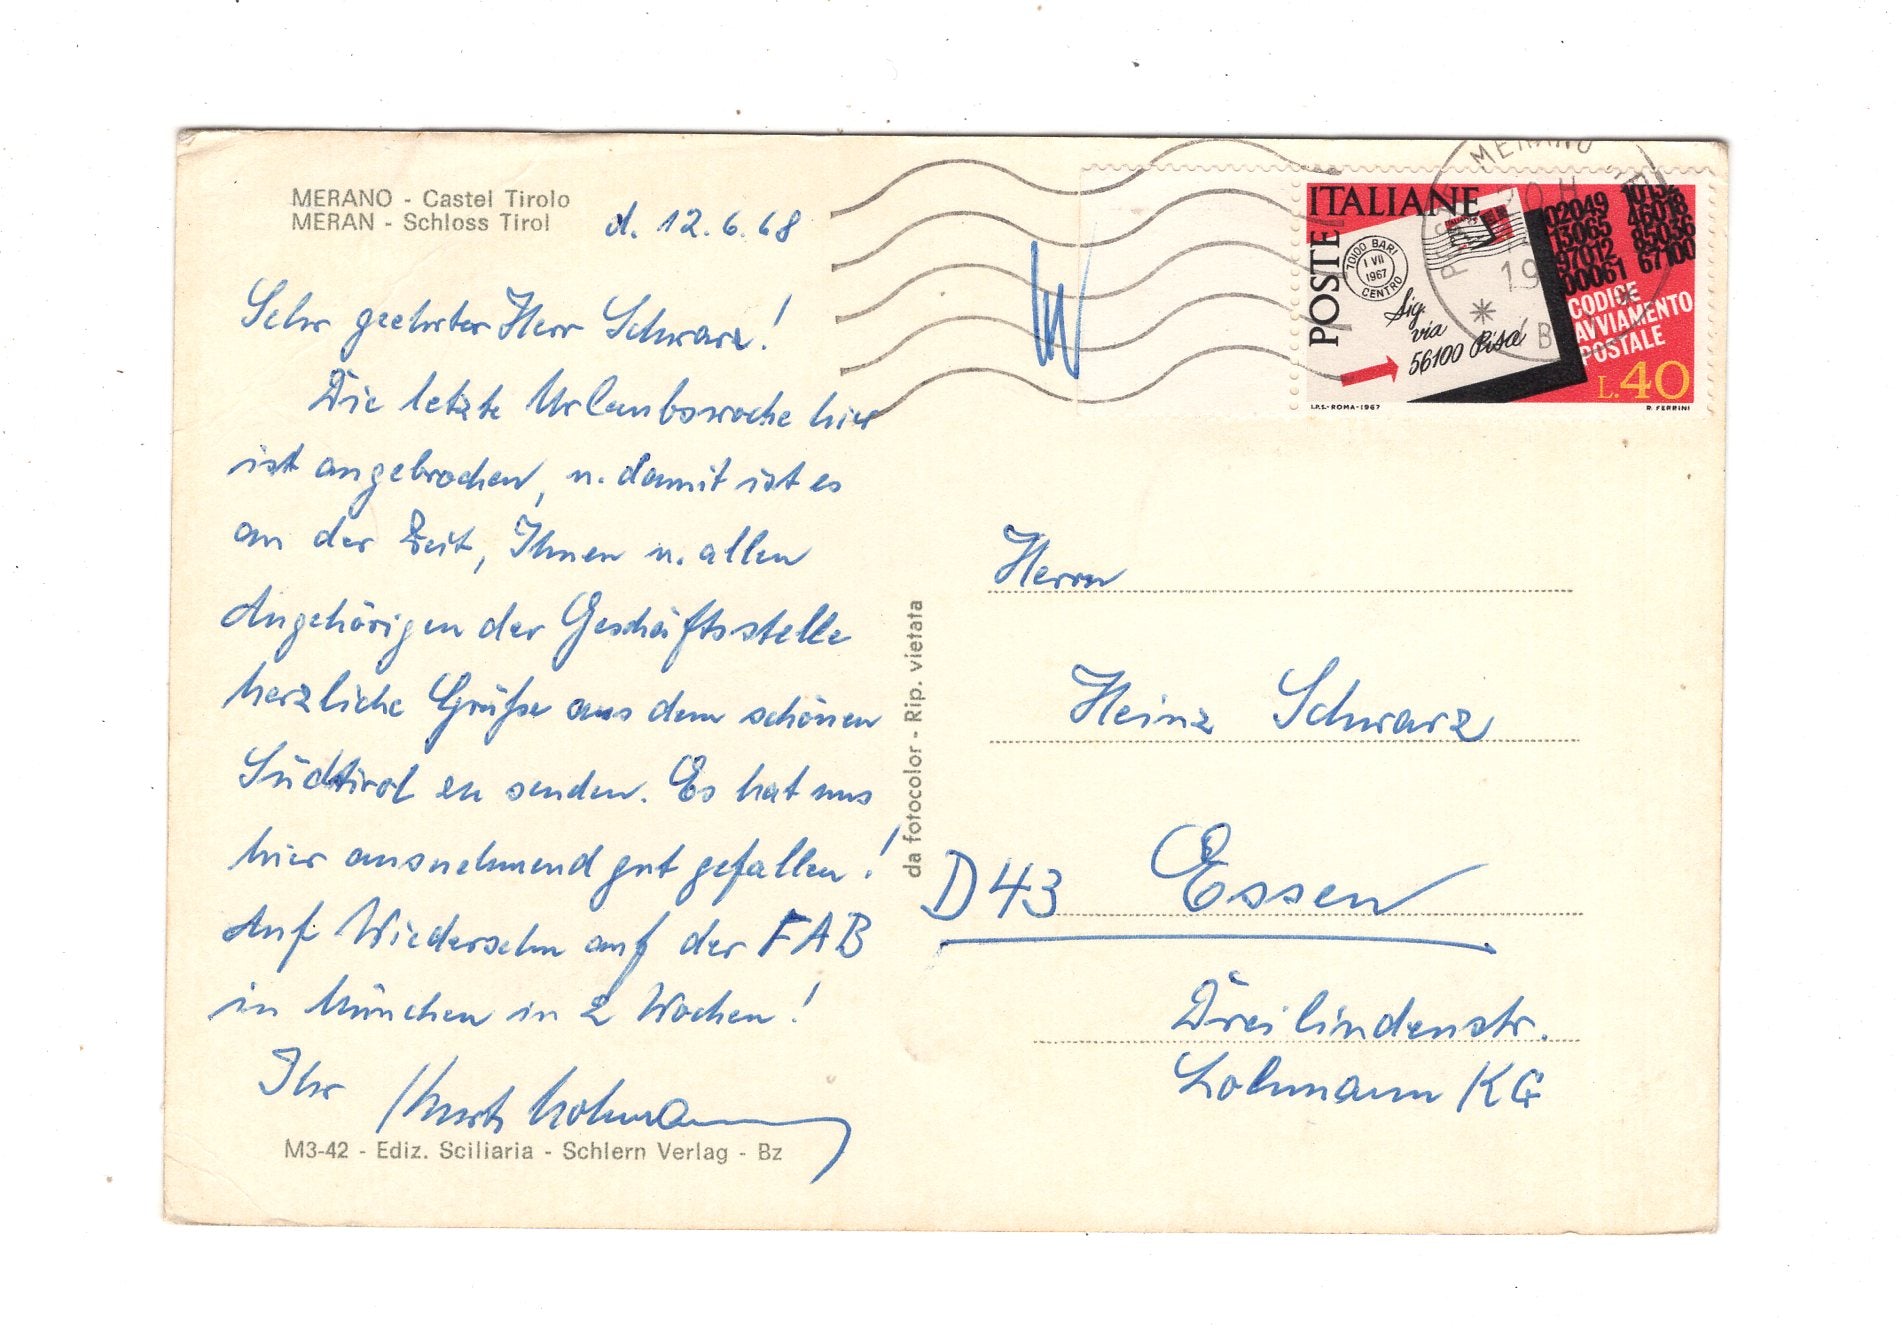 MERANO - Castel Tirolo
MERAN - Schloss Tirol
d. 12.6.68
Sehr geehrter Herr Schwarz!
Die letzte Urlaubswoche hier
ist angebrochen, u. damit ist es
an der Zeit, Ihnen u. allen
Angehörigen der Geschäftsstelle
herzliche Grüße aus dem schönen
Südtirol zu senden. Es hat uns
hier ausnehmend gut gefallen!
Auf Wiedersehn auf der FAB
in München in 2 Wochen!
Ihr Kurt Lohmann
M3-42 - Ediz. Sciliaria - Schlern Verlag - Bz
da fotocolor - Rip. vietata
POSTE ITALIANE
70100 BARI
1 VII
1967
CENTRO
Sig.
via
56100 Pisa
02049 10132
13065 46018
97012 85036
00061 67100
CODICE
AVVIAMENTO
POSTALE
L.40
I.P.S.-ROMA-1967
R. FERRINI
MERANO
19
Herrn
Heinz Schwarz
D 43 Essen
Dreilindenstr.
Lohmann KG